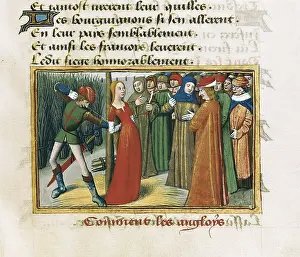 Et tantost tirerent leur guilles
Les bourguignons si sen allerent
En leur pais semblablement
Et ainsi les francois leverent
Ledit siege honnorablement
Comment les angloys